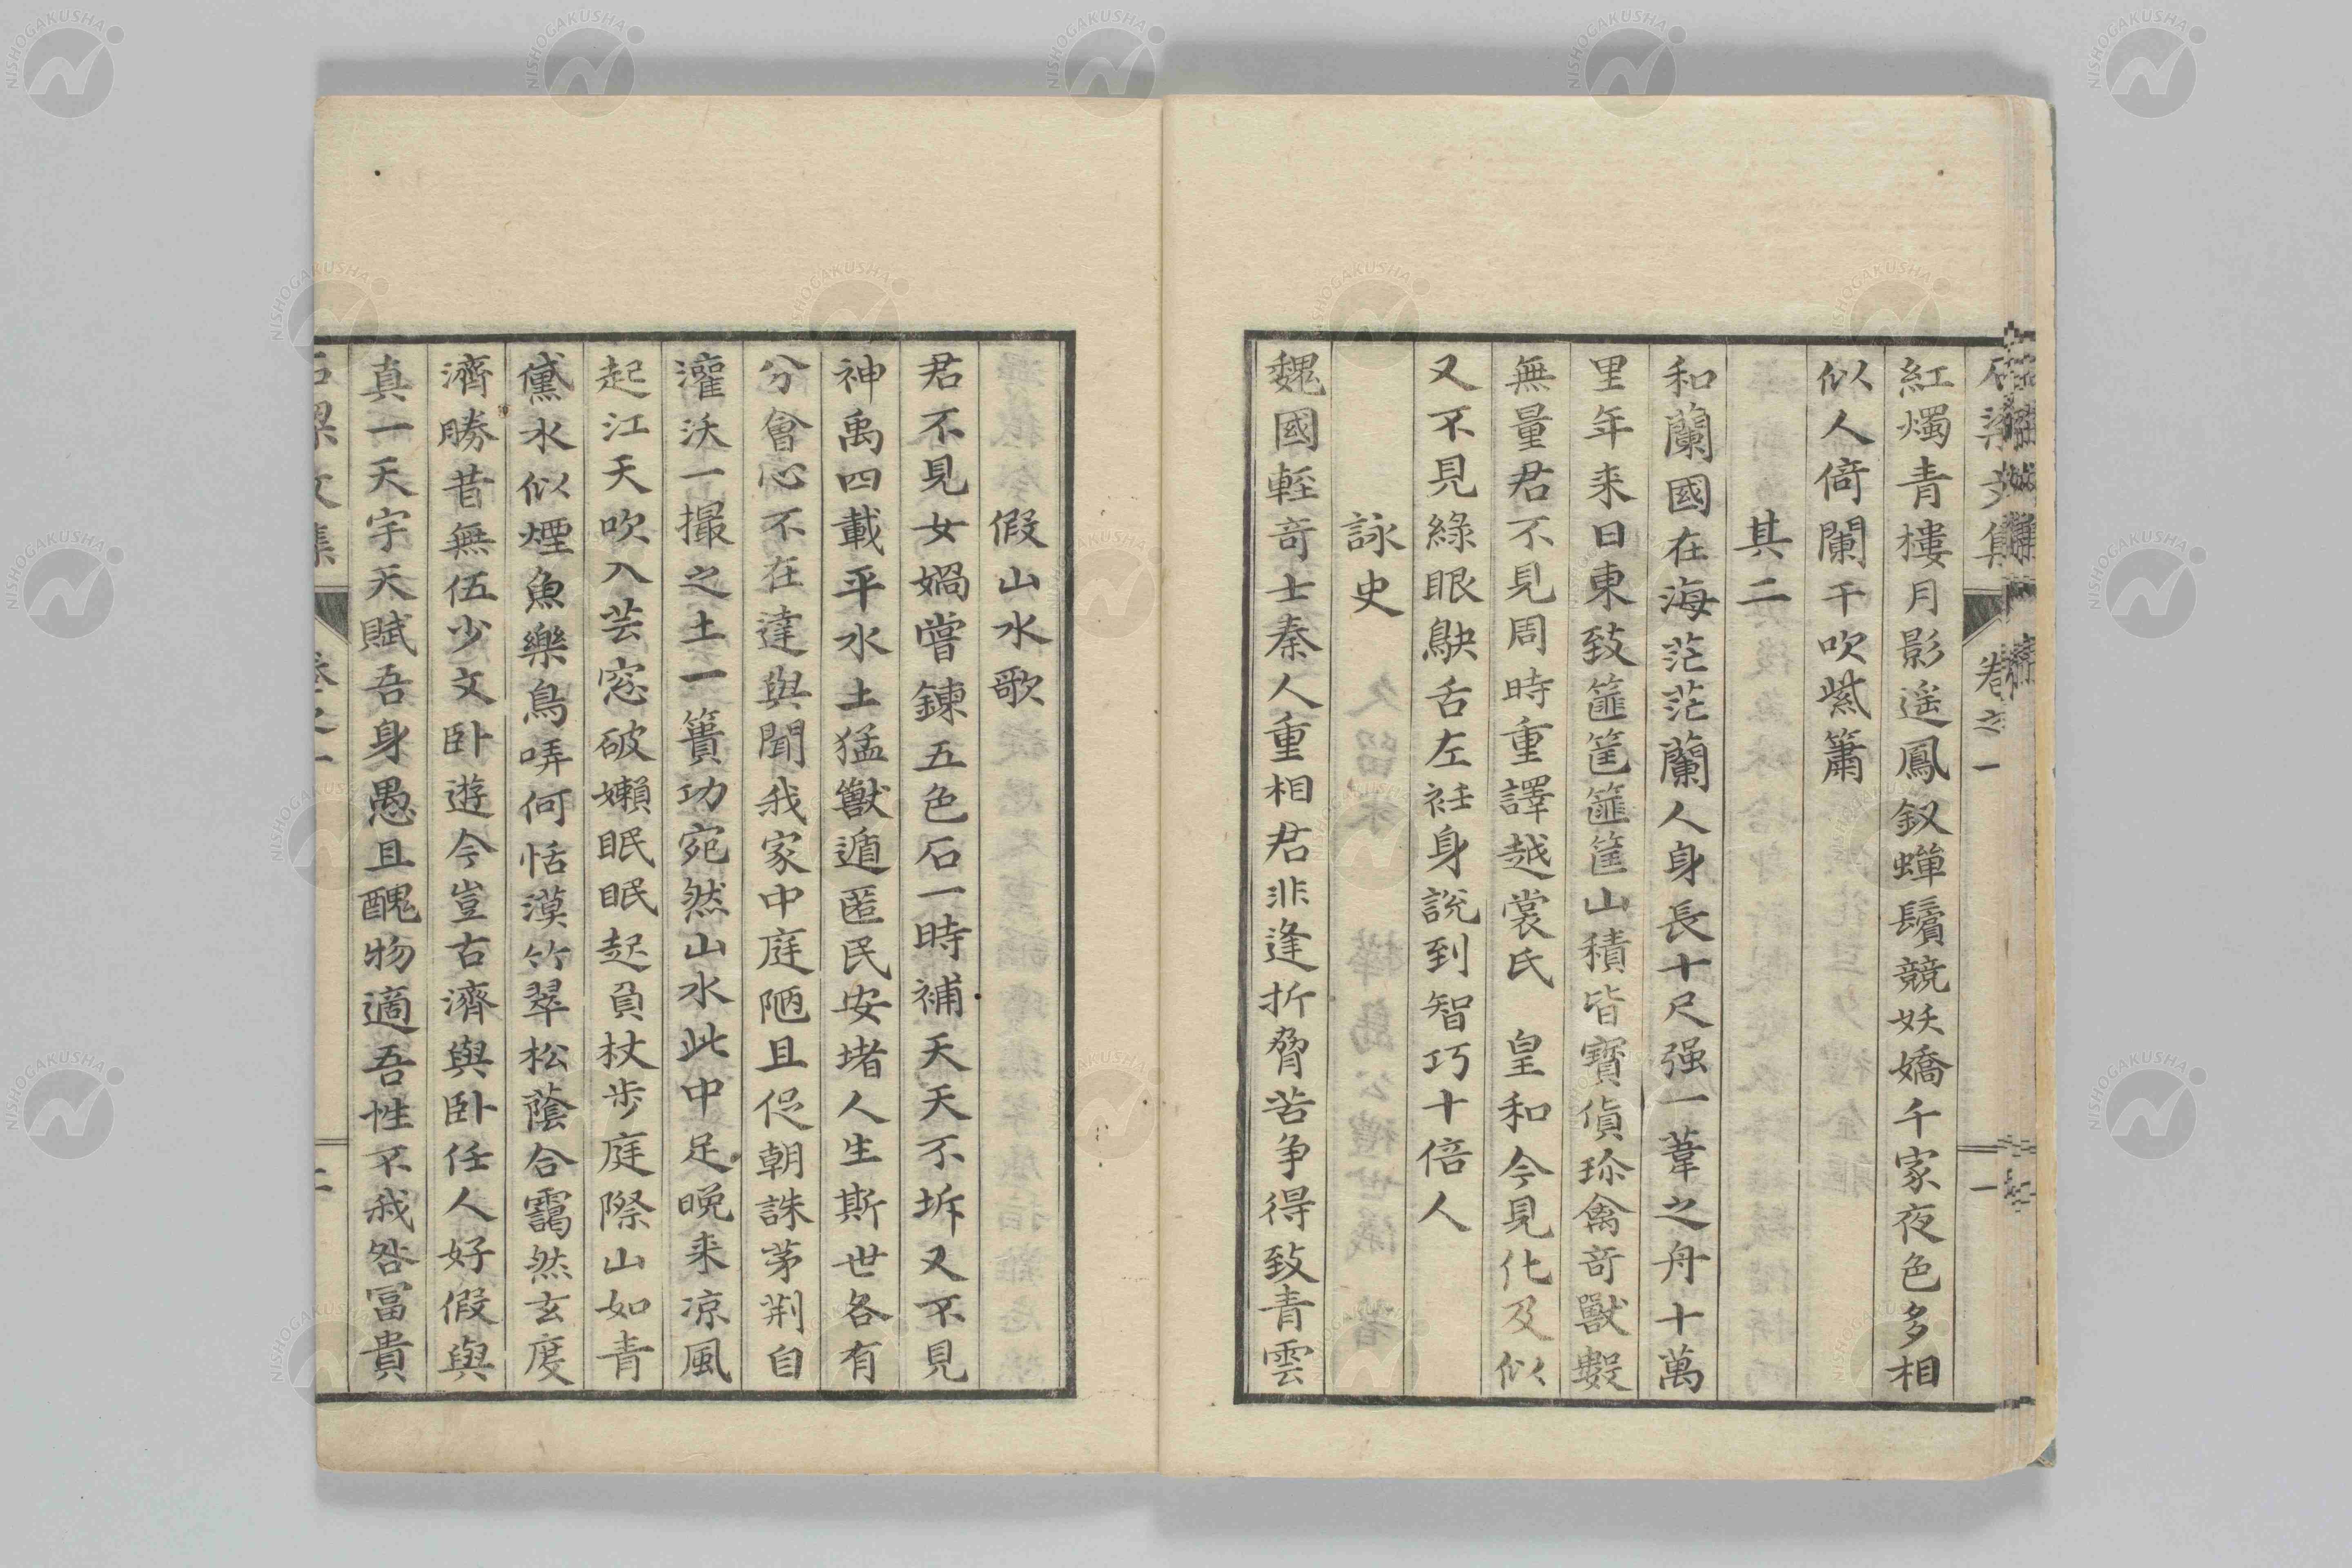 石梁文集 卷之一 一
紅燭青樓月影遥鳳釵蟬鬢競妖嬌千家夜色多相
似人倚闌干吹紫簫
其二
和蘭國在海茫茫蘭人身長十尺强一葦之舟十萬
里年来日東致篚筐篚筐山積皆寶貨珎禽竒獸數
無量君不見周時重譯越裳氏 皇和今見化及似
又不見綠眼鴃舌左衽身說到智巧十倍人
詠史
魏國輕竒士秦人重相君非逢折脅苦争得致青雲
假山水歌
君不見女媧嘗鍊五色石一時補天天不坼又不見
神禹四載平水土猛獸遁匿民安堵人生斯世各有
分會心不在達與聞我家中庭陋且促朝誅茅荆自
灌沃一撮之土一簣功宛然山水此中足晚来凉風
起江天吹入芸窓破嬾眠眠起負杖步庭際山如青
黛水似煙魚樂鳥哢何恬漠竹翠松蔭合靄然玄度
濟勝昔無伍少文卧遊今豈古濟與卧任人好假與
真一天宇天賦吾身愚且醜物適吾性不我咎冨貴
石梁文集 卷之一 二
NISHOGAKUSHA